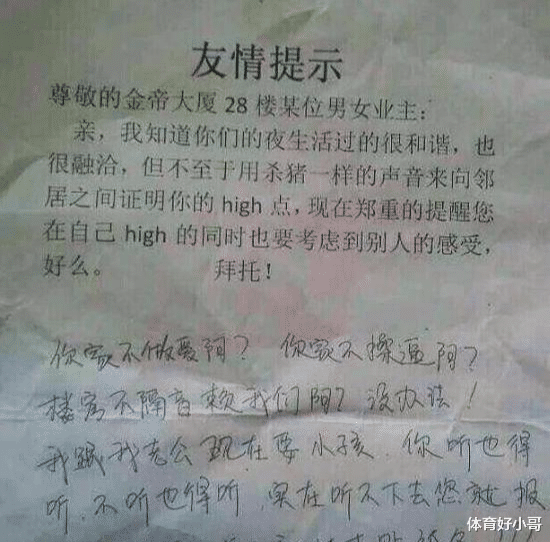 友情提示
尊敬的金帝大厦 28 楼某位男女业主：
亲，我知道你们的夜生活过的很和谐，也
很融洽，但不至于用杀猪一样的声音来向邻
居之间证明你的 high 点，现在郑重的提醒您
在自己 high 的同时也要考虑到别人的感受，
好么。 拜托！
你家不做爱阿？ 你家不操逼阿？
楼房不隔音赖我们阿？没办法！
我跟我老公现在要小孩．你听也得
听．不听也得听．实在听不下去您就报
体育好小哥